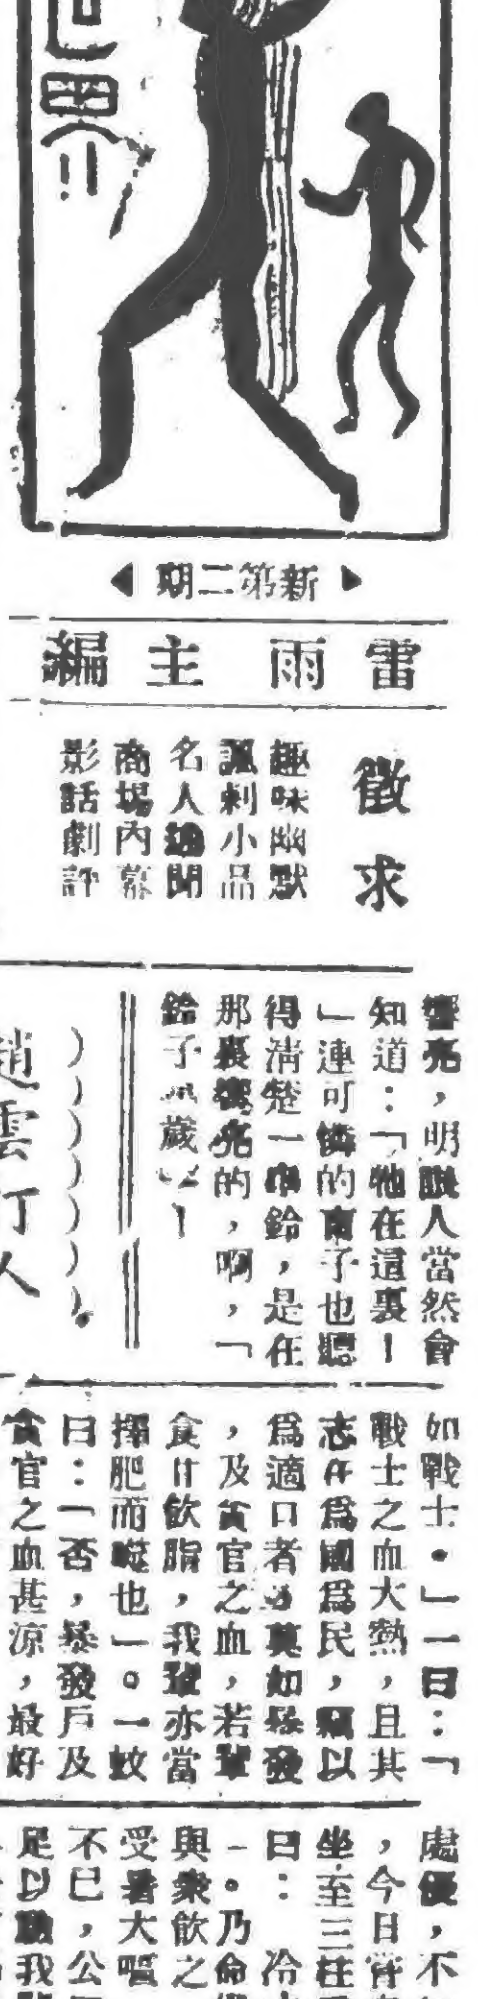 世界
新第二期
雷雨主編
徵求
趣味幽默
諷刺小品
名人趣聞
商場內幕
影話劇評
響亮，明眼人當然會
知道：「牠在這裏！
」連可憐的盲子也聽
得淸楚一串鈴，是在
那裏響亮的，啊，「
鈴子
趙雲打人
如戰士。」一曰：「
戰士之血大熱，且其
志在爲國爲民，
爲適口者必莫如暴發
，及貪官之血，若輩
食甘飲脂，我輩亦當
擇肥而噬也」。一蚊
曰：「否，暴發戶及
貪官之血甚涼，最好
處優，不
，今日
坐至三
曰：
。乃命
與衆飲之
受暑大嘔
不已，公
足以助我